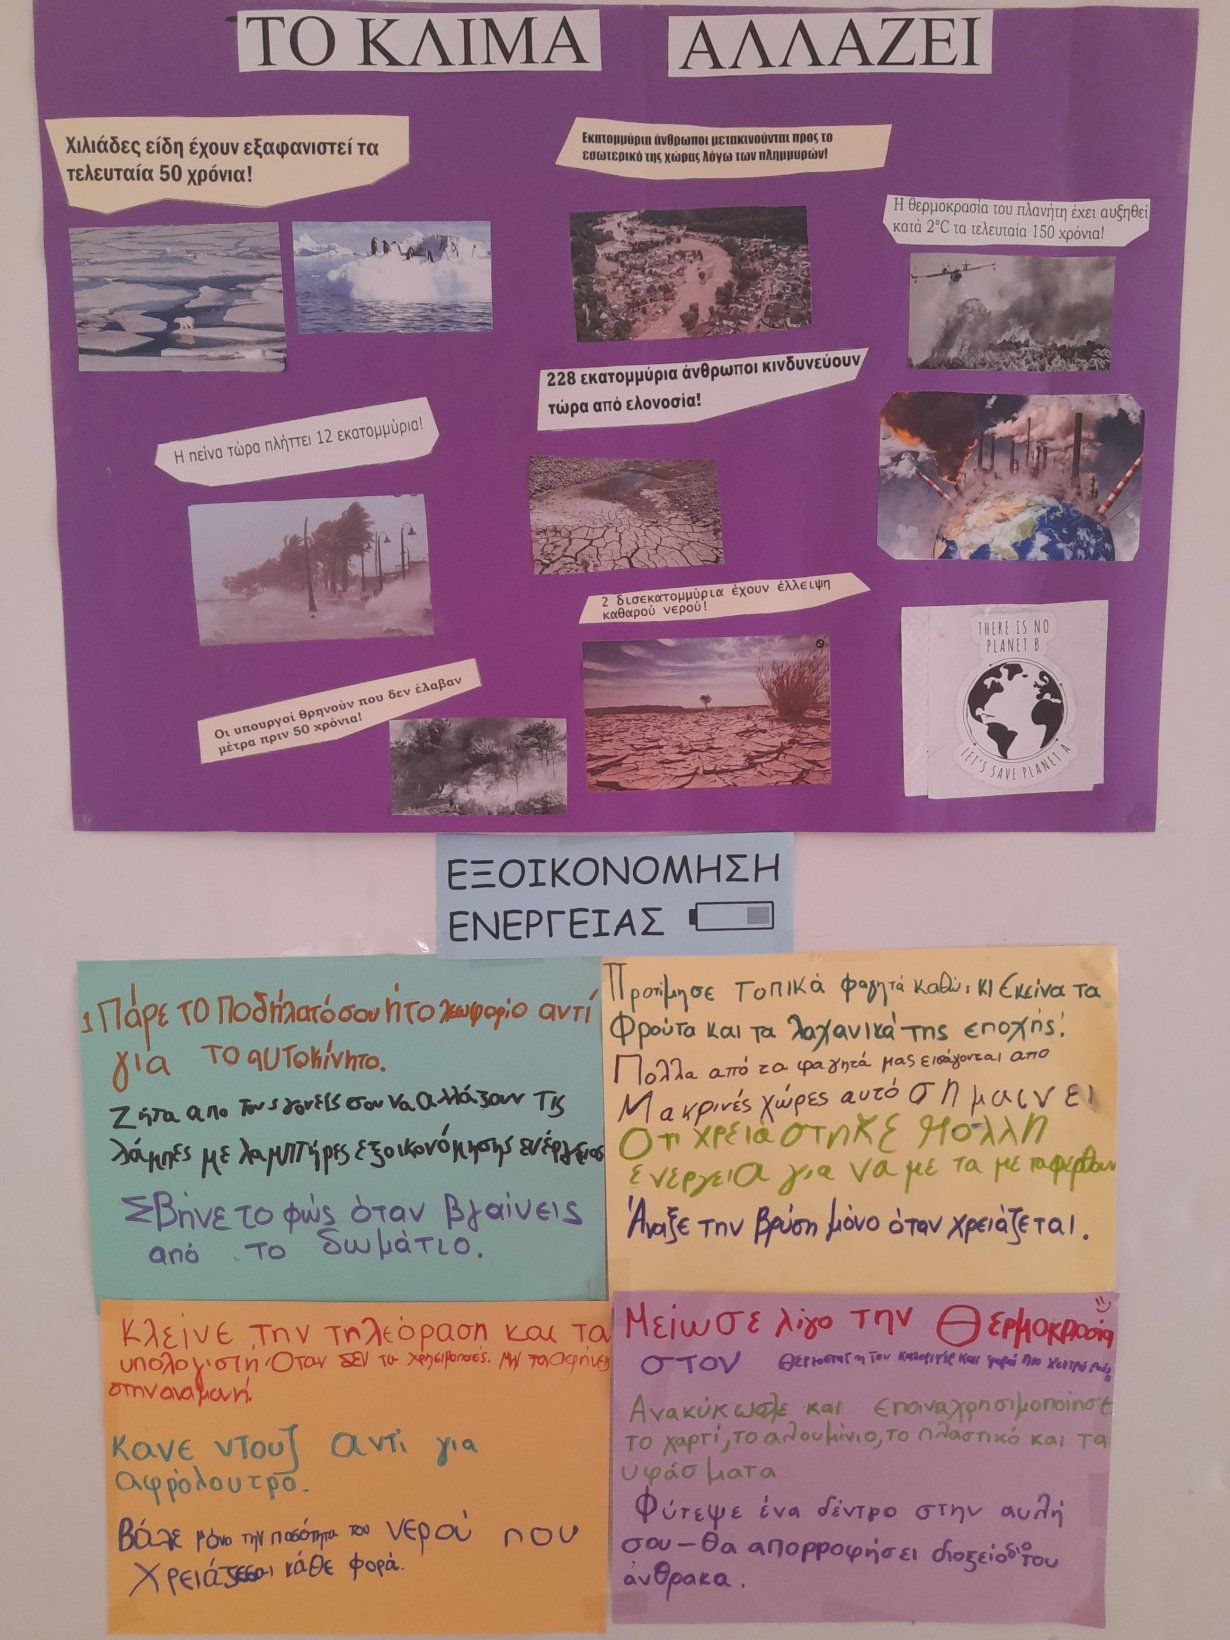 ΤΟ ΚΛΙΜΑ ΑΛΛΑΖΕΙ
Χιλιάδες είδη έχουν εξαφανιστεί τα
τελευταία 50 χρόνια!
Εκατομμύρια άνθρωποι μετακινούνται προς το
εσωτερικό της χώρας λόγω των πλημμυρών!
Η θερμοκρασία του πλανήτη έχει αυξηθεί
κατά 2°C τα τελευταία 150 χρόνια!
228 εκατομμύρια άνθρωποι κινδυνεύουν
τώρα από ελονοσία!
Η πείνα τώρα πλήττει 12 εκατομμύρια!
2 δισεκατομμύρια έχουν έλλειψη
καθαρού νερού!
Οι υπουργοί θρηνούν που δεν έλαβαν
μέτρα πριν 50 χρόνια!
THERE IS NO
PLANET B
LET'S SAVE PLANET A
ΕΞΟΙΚΟΝΟΜΗΣΗ
ΕΝΕΡΓΕΙΑΣ
Πάρε το ποδήλατό σου ή το λεωφορίο αντί
για το αυτοκίνητο.
Ζήτα απο τους γονείς σου να αλλάξουν τις
λάμπες με λαμπτήρες εξοικονόμησης ενέργειας
Σβήνε το φώς όταν βγαίνεις
από το δωμάτιο.
Προτίμησε τοπικά φαγητά καθώς κι εκείνα τα
φρούτα και τα λαχανικά της εποχής!
Πολλα από τα φαγητά μας εισάγονται απο
μακρινές χώρες αυτό σημαινει
ότι χρειάστηκε πολλή
ενεργεια για να με τα μεταφέρθουν
Άναξε την βρύση μόνο όταν χρειάζεται.
Κλείνε την τηλεόραση και τα
υπολογιστή όταν δεν τα χρησιμοποιείς. Μην τα αφήνεις
στην αναμονή.
Κανε ντουζ αντί για
αφρόλουτρο.
Βάλε μόνο την ποσότητα του νερού που
χρειάζεσαι κάθε φορά.
Μείωσε λίγο την θερμοκρασία
στον θερμοστάτη του καλοριφέρ και φορά πιο χοντρά ρούχα
Ανακύκωσε και επαναχρησιμοποίησε
το χαρτί, το αλουμίνιο, το πλαστικό και τα
υφάσματα
Φύτεψε ένα δέντρο στην αυλή
σου – θα απορροφήσει διοξείδιο του
άνθρακα.